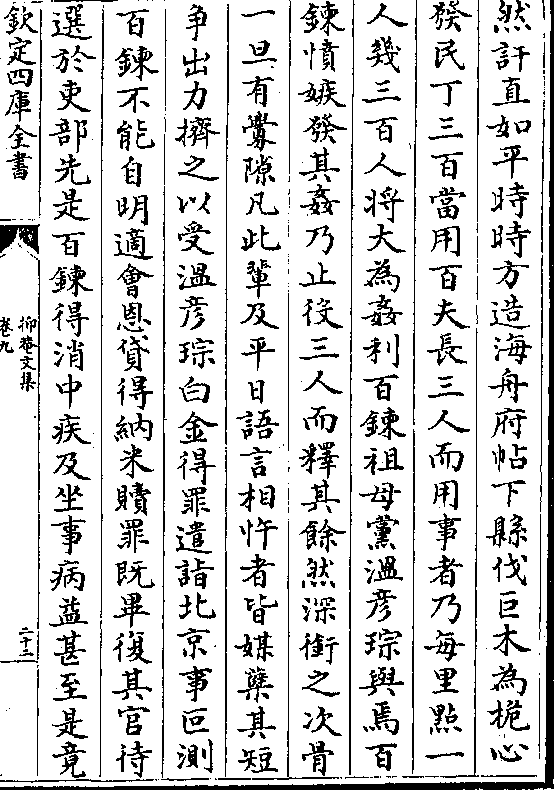 然訐直如平時時方造海舟府帖下縣伐巨木為桅心
發民丁三百當用百夫長三人而用事者乃每里㸃一
人幾三百人將大為姦利百鍊祖母黨溫彦琮與焉百
鍊憤嫉發其姦乃止役三人而釋其餘然深銜之次骨
一旦有釁隙凡此輩及平日語言相忤者皆媒糵其短
争出力擠之以受溫彦琮白金得罪遣詣北京事叵測
百鍊不能自明適㑹恩貸得納米贖罪既畢復其官待
選於吏部先是百鍊得消中疾及坐事病益甚至是竟
欽定四庫全書
抑菴文集
卷九
二十二